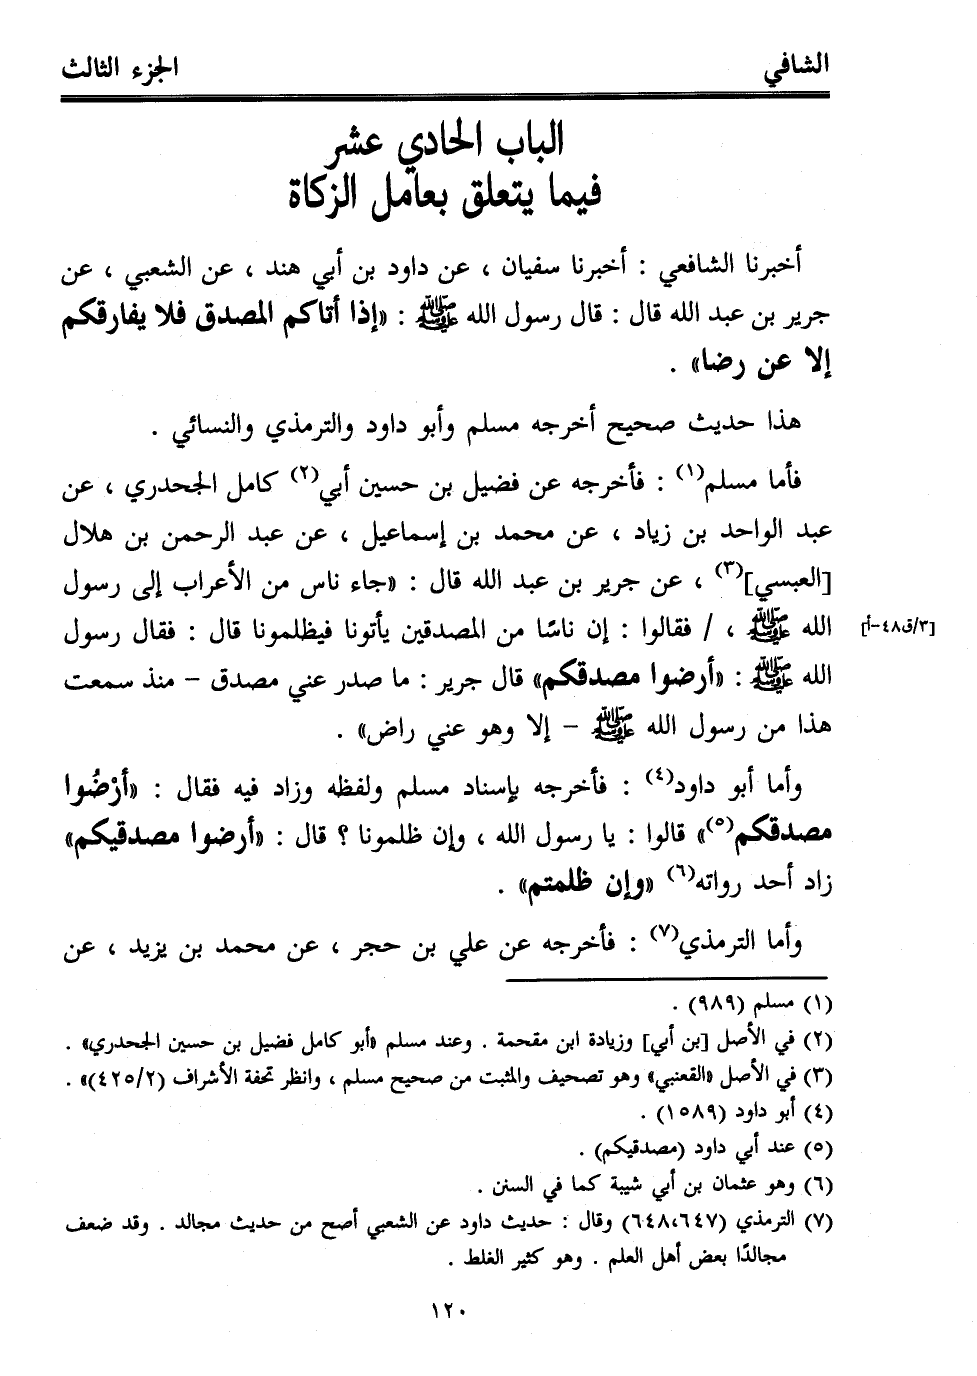 الشافي
الجزء الثالث
الباب الحادي عشر
فيما يتعلق بعامل الزكاة
أخبرنا الشافعي : أخبرنا سفيان ، عن داود بن أبي هند ، عن الشعبي ، عن
جرير بن عبد الله قال : قال رسول الله ﷺ : «إذا أتاكم المصدق فلا يفارقكم
إلا عن رضا» .
هذا حديث صحيح أخرجه مسلم وأبو داود والترمذي والنسائي .
فأما مسلم(١) : فأخرجه عن فضيل بن حسين أبي(٢) كامل الجحدري ، عن
عبد الواحد بن زياد ، عن محمد بن إسماعيل ، عن عبد الرحمن بن هلال
[العبسي](٣) ، عن جرير بن عبد الله قال : «جاء ناس من الأعراب إلى رسول
الله ﷺ ، / فقالوا : إن ناسًا من المصدقين يأتونا فيظلمونا قال : فقال رسول
[٣/ق٤٨-أ]
الله ﷺ : «أرضوا مصدقكم» قال جرير : ما صدر عني مصدق – منذ سمعت
هذا من رسول الله ﷺ – إلا وهو عني راض» .
وأما أبو داود(٤) : فأخرجه بإسناد مسلم ولفظه وزاد فيه فقال : «أرْضُوا
مصدقكم(٥)» قالوا : يا رسول الله ، وإن ظلمونا ؟ قال : «أرضوا مصدقيكم»
زاد أحد رواته(٦) «وإن ظلمتم» .
وأما الترمذي(٧) : فأخرجه عن علي بن حجر ، عن محمد بن يزيد ، عن
(١) مسلم (٩٨٩) .
(٢) في الأصل [بن أبي] وزيادة ابن مقحمة . وعند مسلم «أبو كامل فضيل بن حسين الجحدري» .
(٣) في الأصل «القعنبي» وهو تصحيف والمثبت من صحيح مسلم ، وانظر تحفة الأشراف (٤٢٥/٢)» .
(٤) أبو داود (١٥٨٩) .
(٥) عند أبي داود (مصدقيكم) .
(٦) وهو عثمان بن أبي شيبة كما في السنن .
(٧) الترمذي (٦٤٨،٦٤٧) وقال : حديث داود عن الشعبي أصح من حديث مجالد . وقد ضعف
مجالدًا بعض أهل العلم . وهو كثير الغلط .
١٢٠